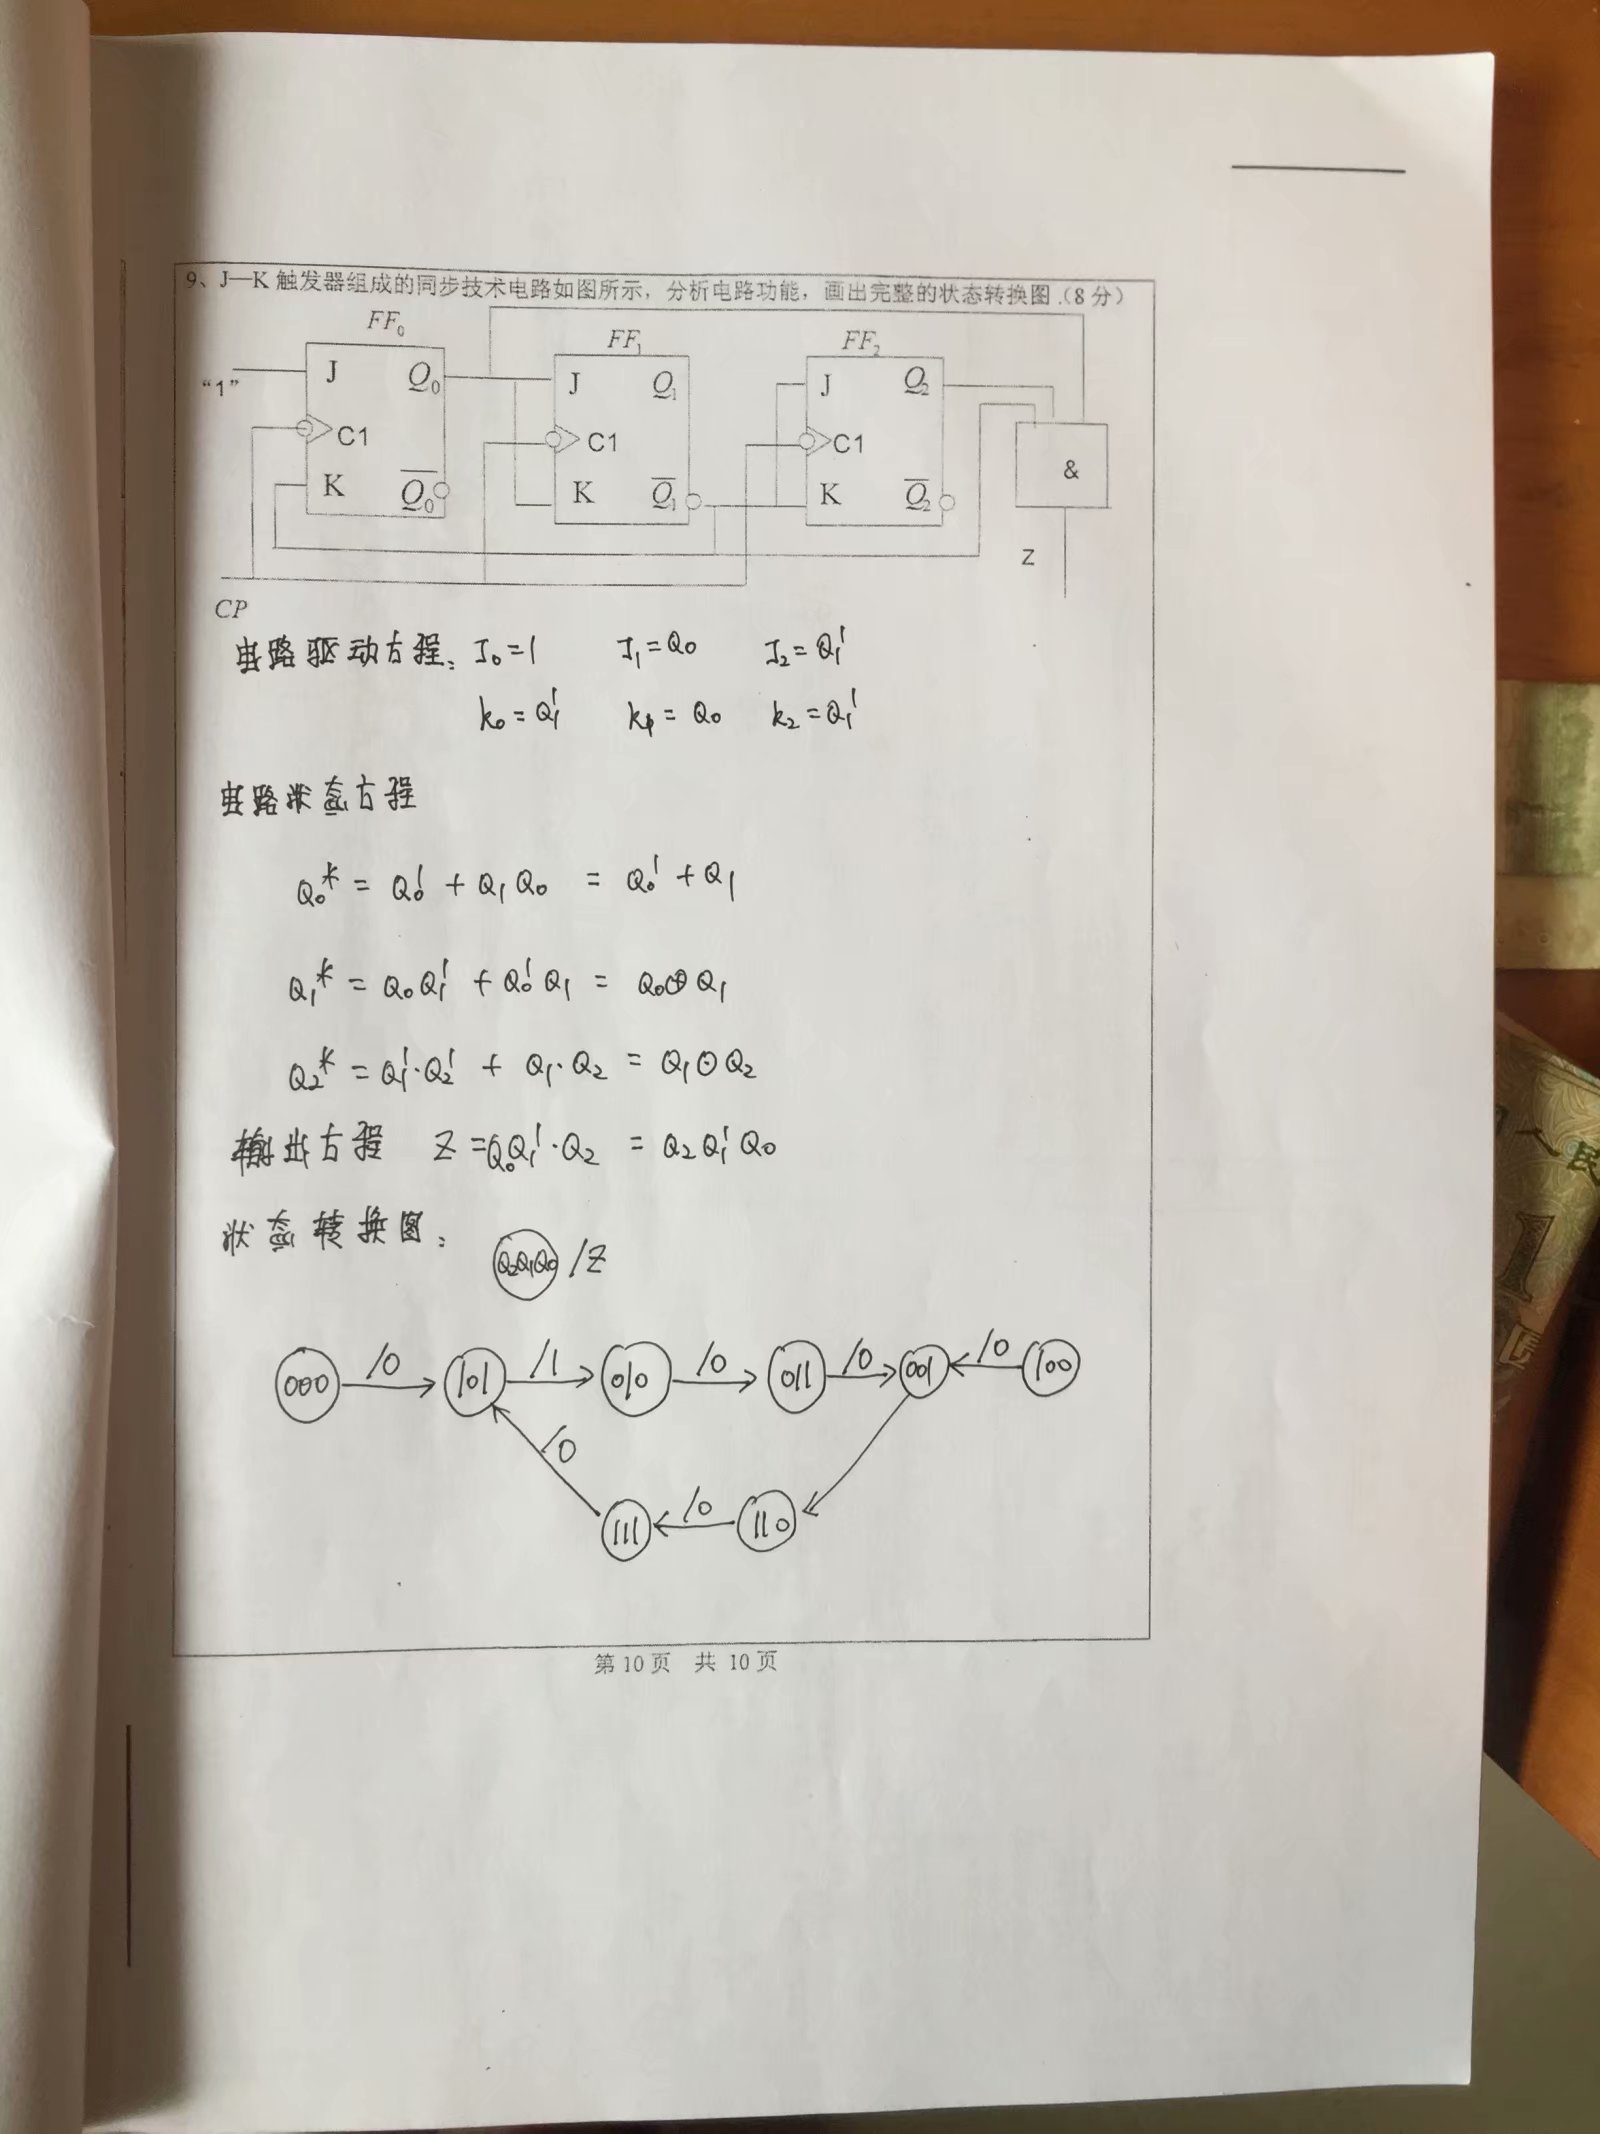 9、J—K 触发器组成的同步技术电路如图所示，分析电路功能，画出完整的状态转换图.（8 分）
FF₀ FF₁ FF₂
“1” J Q₀ J Q₁ J Q₂
C1 C1 C1 &
K Q̅₀ K Q̅₁ K Q̅₂
Z
CP
电路驱动方程: J₀=1 J₁=Q₀ J₂=Q₁'
k₀=Q₁' k₁=Q₀ k₂=Q₁'
电路状态方程
Q₀* = Q₀' + Q₁Q₀ = Q₀' + Q₁
Q₁* = Q₀Q₁' + Q₀'Q₁ = Q₀⊕Q₁
Q₂* = Q₁'·Q₂' + Q₁·Q₂ = Q₁⊙Q₂
输出方程 Z=Q₀Q₁'·Q₂ = Q₂Q₁'Q₀
状态转换图: Q₂Q₁Q₀ /Z
000 /0 101 /1 010 /0 011 /0 001 /0 100
/0
111 /0 110
第 10 页 共 10 页
1